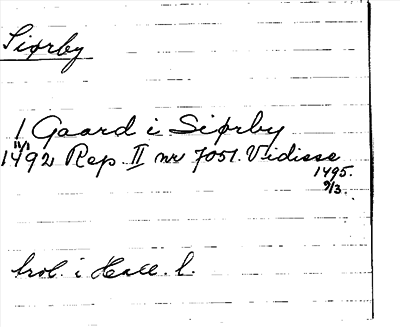 Siørby
1 Gaard i Siørby
11/1
1492 Rep. II nr 7051. Vidisse
1495.
9/3.
i Hall. h.